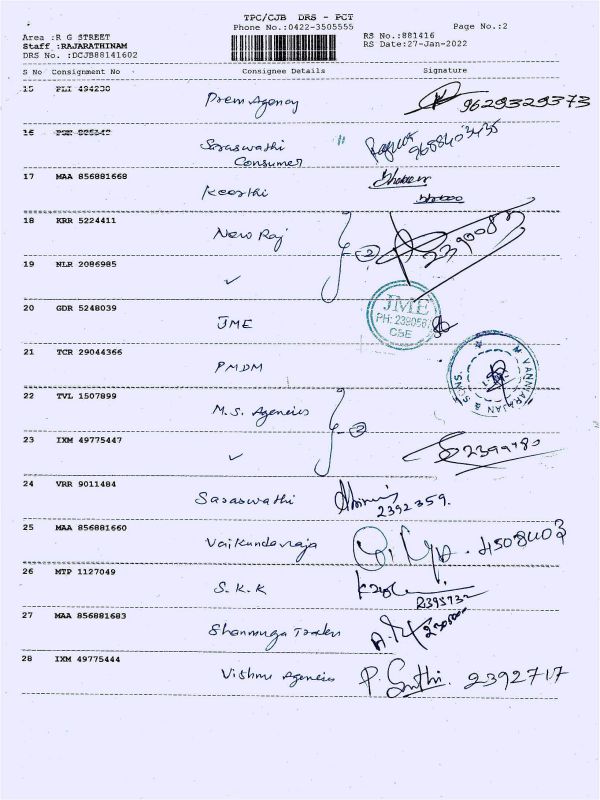 TPC/CJB DRS - PCT
Phone No.:0422-3505555
Page No.:2
Area :R G STREET
RS No.:881416
Staff :RAJARATHINAM
RS Date:27-Jan-2022
DRS No. :DCJB88141602
S No Consignment No Consignee Details Signature
15 PLI 494230 Prem Agency 9629329373
16
Saraswathi
Consumer
17 MAA 856881668 Keerthi
18 KRR 5224411 New Raj 2
19 NLR 2086985 ✓
20 GDR 5248039 JME
JME
PH: 2380567
CBE
21 TCR 29044366 PMDM
M VANNIARAJAN & SONS.
22 TVL 1507899 M.S. Agencies 2
23 IXM 49775447 ✓
24 VRR 9011484 Saraswathi 2392359.
25 MAA 856881660 Vaikundaraja 4508403
26 MTP 1127049 S.K.K 2395732
27 MAA 856881683 Shanmuga Traders
28 IXM 49775444 Vishnu Agencies P. Senthi. 2392717